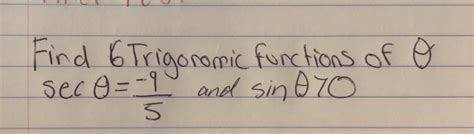 Find 6 Trigonomic functions of θ
sec θ = -9/5 and sin θ > 0